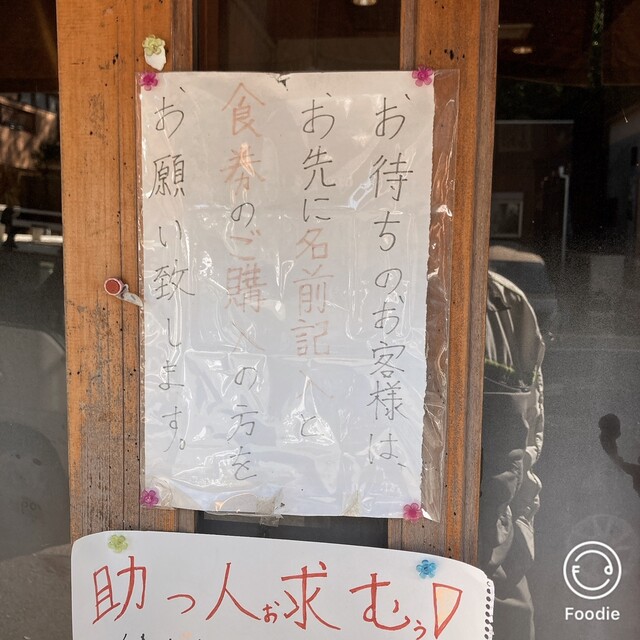 お待ちの、お客様は、
お先に名前記入と
食券のご購入の方を
お願い致します。
助っ人お求むぅ
Foodie